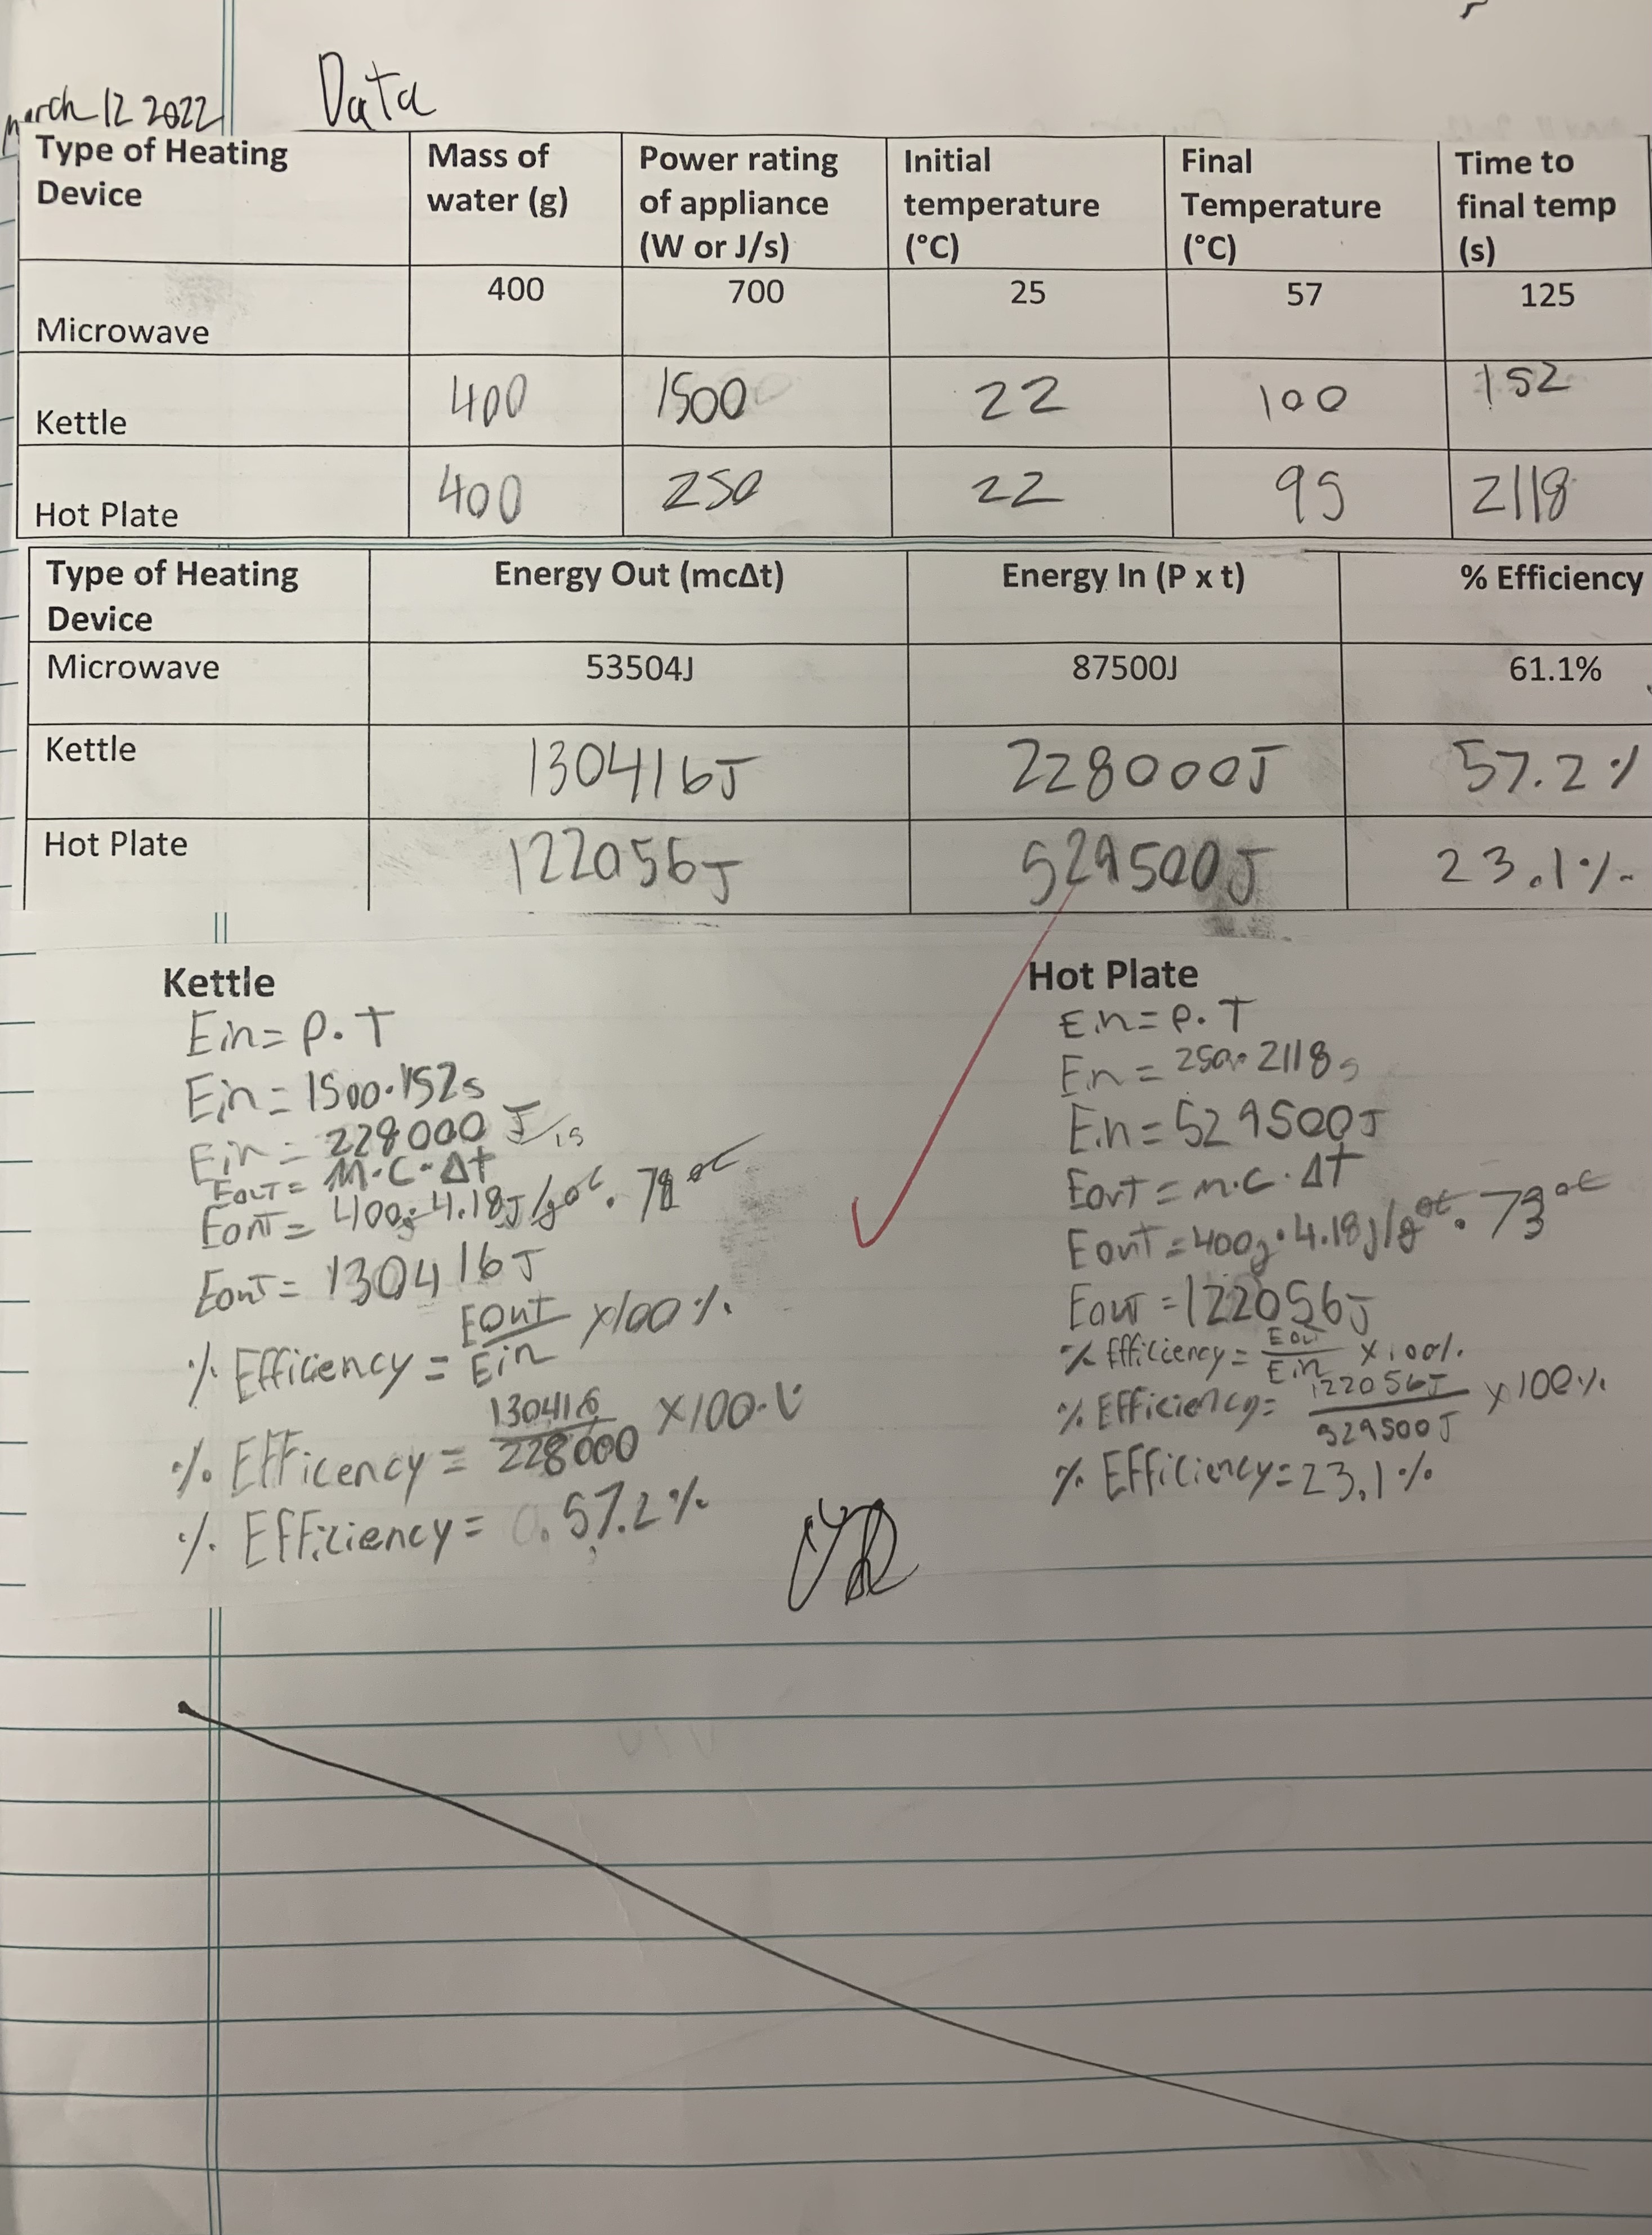 March 12 2022
Data
Type of Heating Device | Mass of water (g) | Power rating of appliance (W or J/s) | Initial temperature (°C) | Final Temperature (°C) | Time to final temp (s)
Microwave | 400 | 700 | 25 | 57 | 125
Kettle | 400 | 1500 | 22 | 100 | 152
Hot Plate | 400 | 250 | 22 | 95 | 2118
Type of Heating Device | Energy Out (mcΔt) | Energy In (P x t) | % Efficiency
Microwave | 53504J | 87500J | 61.1%
Kettle | 130416J | 228000J | 57.2%
Hot Plate | 122056J | 529500J | 23.1%
Kettle
Ein = P·T
Ein = 1500·152s
Ein = 228000 J/1s
Eout = m·c·Δt
Eout = 400g·4.18J/g°c·78°c
Eout = 130416J
% Efficiency = Eout/Ein x100%
% Efficency = 130416/228000 x100%
% Efficiency = 57.2%
Hot Plate
Ein = P·T
Ein = 250·2118s
Ein = 529500J
Eout = m·c·Δt
Eout = 400g·4.18J/g°c·73°c
Eout = 122056J
% Efficiency = Eout/Ein x100%
% Efficiency = 122056J/529500J x100%
% Efficiency = 23.1%